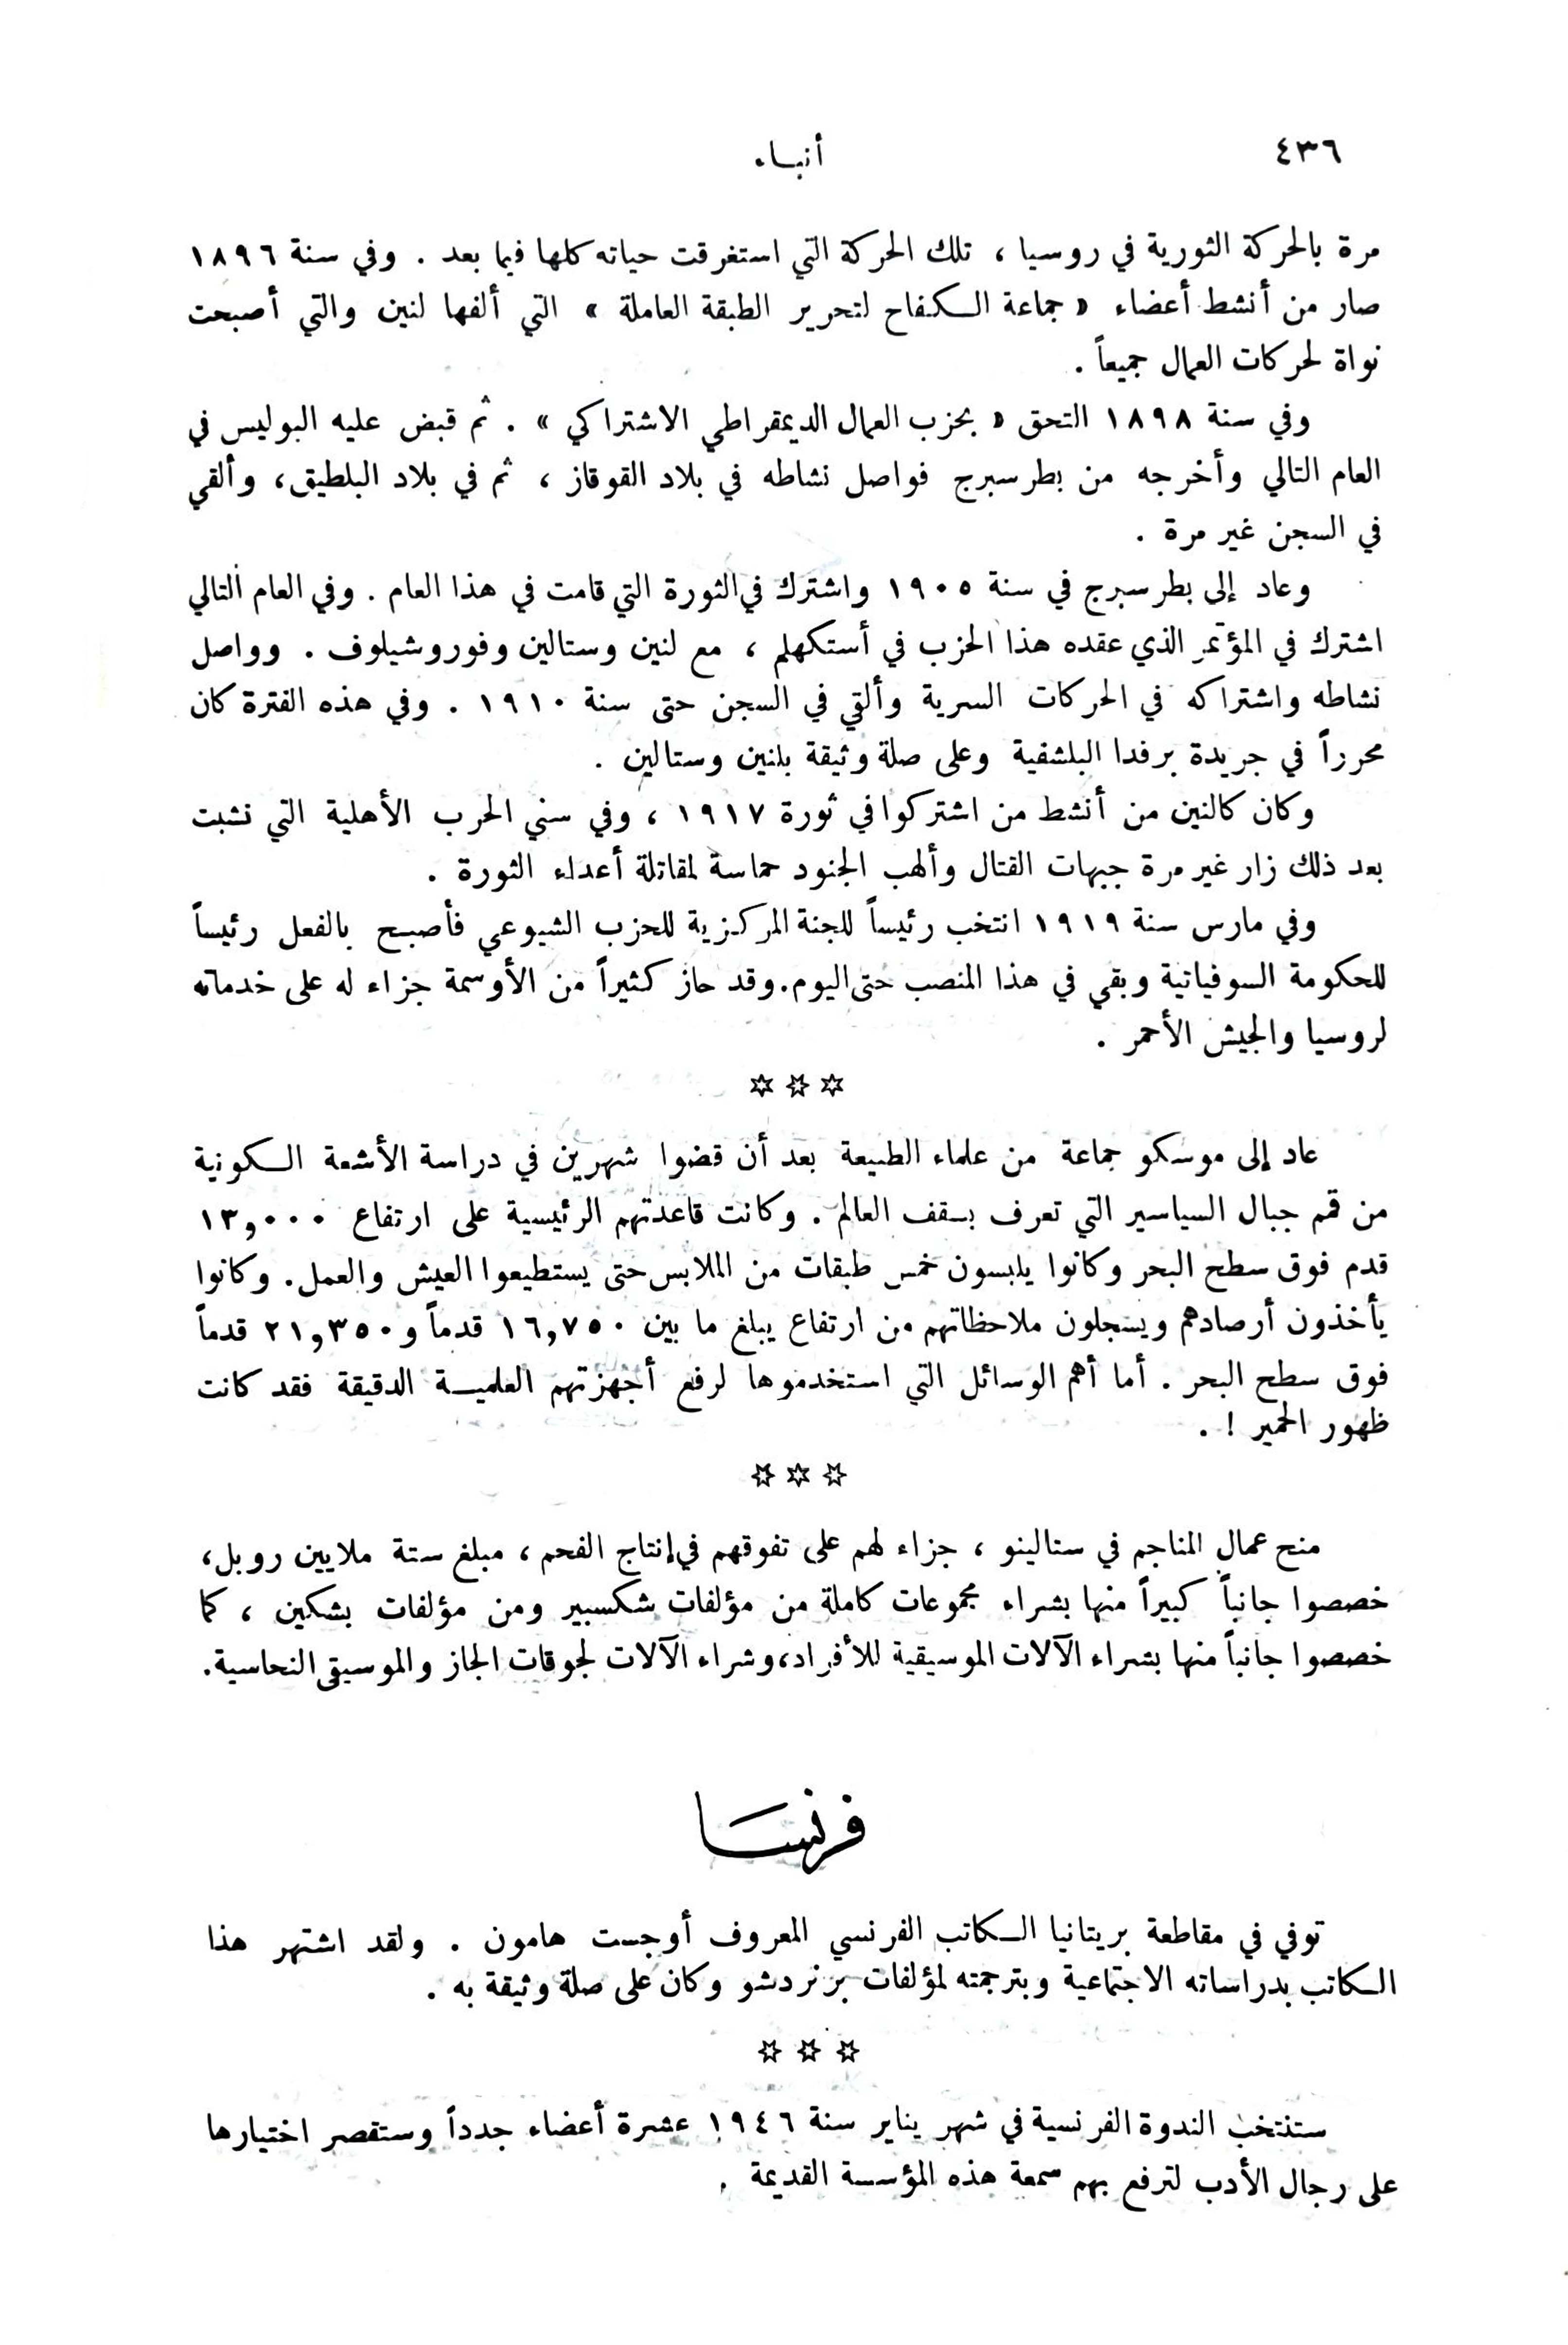 ٤٣٦
أنبـاء
مرة بالحركة الثورية في روسيا ، تلك الحركة التي استغرقت حياته كلها فيما بعد . وفي سنة ١٨٩٦
صار من أنشط أعضاء « جماعة الـكـفاح لتحرير الطبقة العاملة » التي ألفها لنين والتي أصبحت
نواة لحركات العمال جميعاً .
وفي سنة ١٨٩٨ التحق « بحزب العمال الديمقراطي الاشتراكي » . ثم قبض عليه البوليس في
العام التالي وأخرجه من بطرسبرج فواصل نشاطه في بلاد القوقاز ، ثم في بلاد البلطيق، وألقي
في السجن غير مرة .
وعاد إلى بطرسبرج في سنة ١٩٠٥ واشترك في الثورة التي قامت في هذا العام . وفي العام التالي
اشترك في المؤتمر الذي عقده هذا الحزب في أستكهلم ، مع لنين وستالين وفوروشيلوف . وواصل
نشاطه واشتراكه في الحركات السرية وألقي في السجن حتى سنة ١٩١٠ . وفي هذه الفترة كان
محرراً في جريدة برفدا البلشفية وعلى صلة وثيقة بلنين وستالين .
وكان كالنين من أنشط من اشتركوا في ثورة ١٩١٧ ، وفي سني الحرب الأهلية التي نشبت
بعد ذلك زار غير مرة جبهات القتال وألهب الجنود حماسة لمقاتلة أعداء الثورة .
وفي مارس سنة ١٩١٩ انتخب رئيساً للجنة المركزية للحزب الشيوعي فأصبح بالفعل رئيساً
للحكومة السوفياتية وبقي في هذا المنصب حتى اليوم. وقد حاز كثيراً من الأوسمة جزاء له على خدماته
لروسيا والجيش الأحمر .
☆ ☆ ☆
عاد إلى موسكو جماعة من علماء الطبيعة بعد أن قضوا شهرين في دراسة الأشعة الـكونية
من قمم جبال السياسير التي تعرف بسقف العالم . وكانت قاعدتهم الرئيسية على ارتفاع ١٣,٠٠٠
قدم فوق سطح البحر وكانوا يلبسون خمس طبقات من الملابس حتى يستطيعوا العيش والعمل. وكانوا
يأخذون أرصادهم ويسجلون ملاحظاتهم من ارتفاع يبلغ ما بين ١٦,٧٥٠ قدماً و ٢١,٣٥٠ قدماً
فوق سطح البحر . أما أهم الوسائل التي استخدموها لرفع أجهزتهم العلميـة الدقيقة فقد كانت
ظهور الحمير ! .
☆ ☆ ☆
منح عمال المناجم في ستالينو ، جزاء لهم على تفوقهم في إنتاج الفحم ، مبلغ ستة ملايين روبل،
خصصوا جانباً كبيراً منها بشراء مجموعات كاملة من مؤلفات شكسبير ومن مؤلفات بشكين ، كما
خصصوا جانباً منها بشراء الآلات الموسيقية للأفراد، وشراء الآلات لجوقات الجاز والموسيقى النحاسية.
فرنسا
توفي في مقاطعة بريتانيا الـكاتب الفرنسي المعروف أوجست هامون . ولقد اشتهر هذا
الـكاتب بدراساته الاجتماعية وبترجمته لمؤلفات برنردشو وكان على صلة وثيقة به .
☆ ☆ ☆
ستنتخب الندوة الفرنسية في شهر يناير سنة ١٩٤٦ عشرة أعضاء جدداً وستقصر اختيارها
على رجال الأدب لترفع بهم سمعة هذه المؤسسة القديمة .